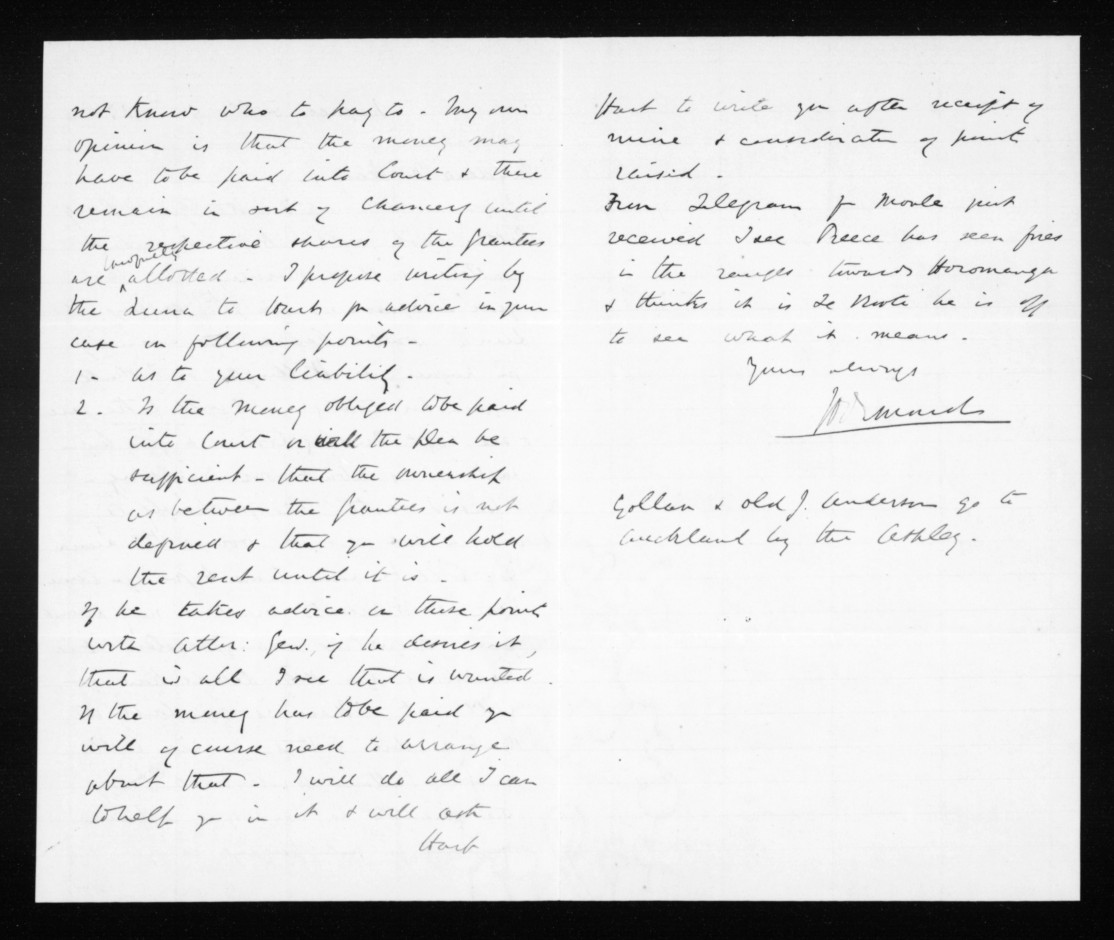 not know who to pay to - My own
opinion is that the money may
have to be paid into Court & there
remain in sort of Chancery until
the respective shares of the Grantees
are allotted - I propose writing by
the Luna to Hart for advice in your
case on following points -
1 - as to your liability.
2 - Is the money obliged to be paid
into Court or will the plea be
sufficient - that the ownership
as between the grantees is not
defined & that you will hold
the rent until it is.
If he takes advice on these points
with Atter: Genl., if he desires it,
that is all I see that is wanted.
If the money has to be paid you
will of course need to arrange
about that - I will do all I can
to help you in it & will ask
Hart
Hart to write you after receipt of
mine & consideration of points
raised -
From Telegram fr Moule just
received I see Preece has seen fires
in the ranges towards Horomanga
& thinks it is Te Kooti he is off
to see what it means.
Yours always
JD Ormond
Gollan & old J. Anderson go to
Auckland by the Ashley.